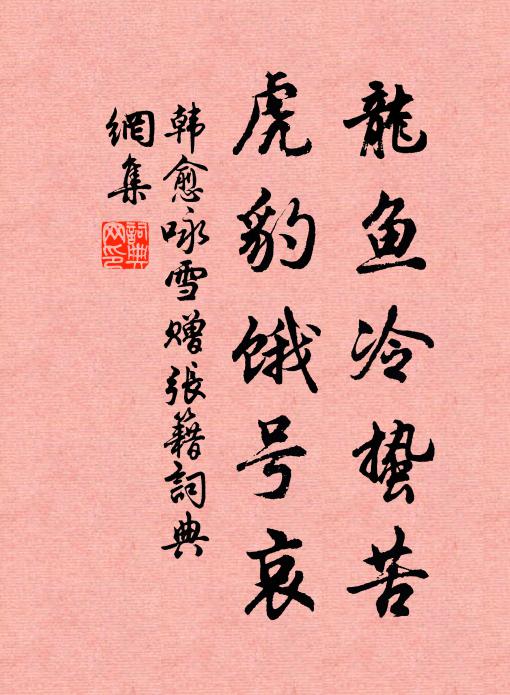 龍鱼冷蛰苦
虎豹饿号哀
韩愈咏雪赠張籍詞典
網集
詞典
网印